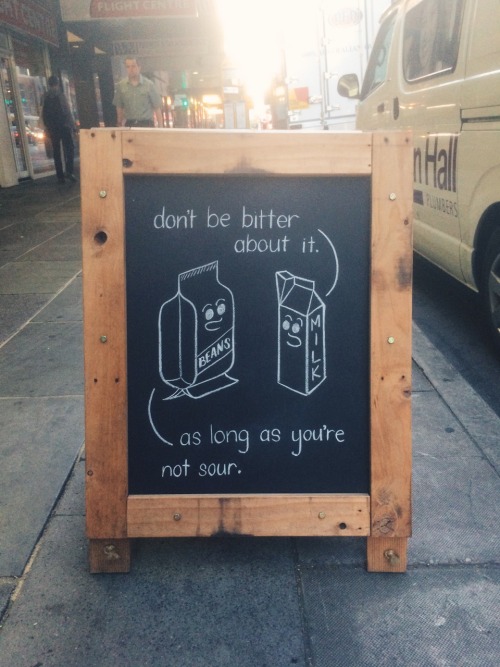 FLIGHT CENTRE
don't be bitter
about it.
BEANS
MILK
as long as you're
not sour.
Hall
PLUMBERS